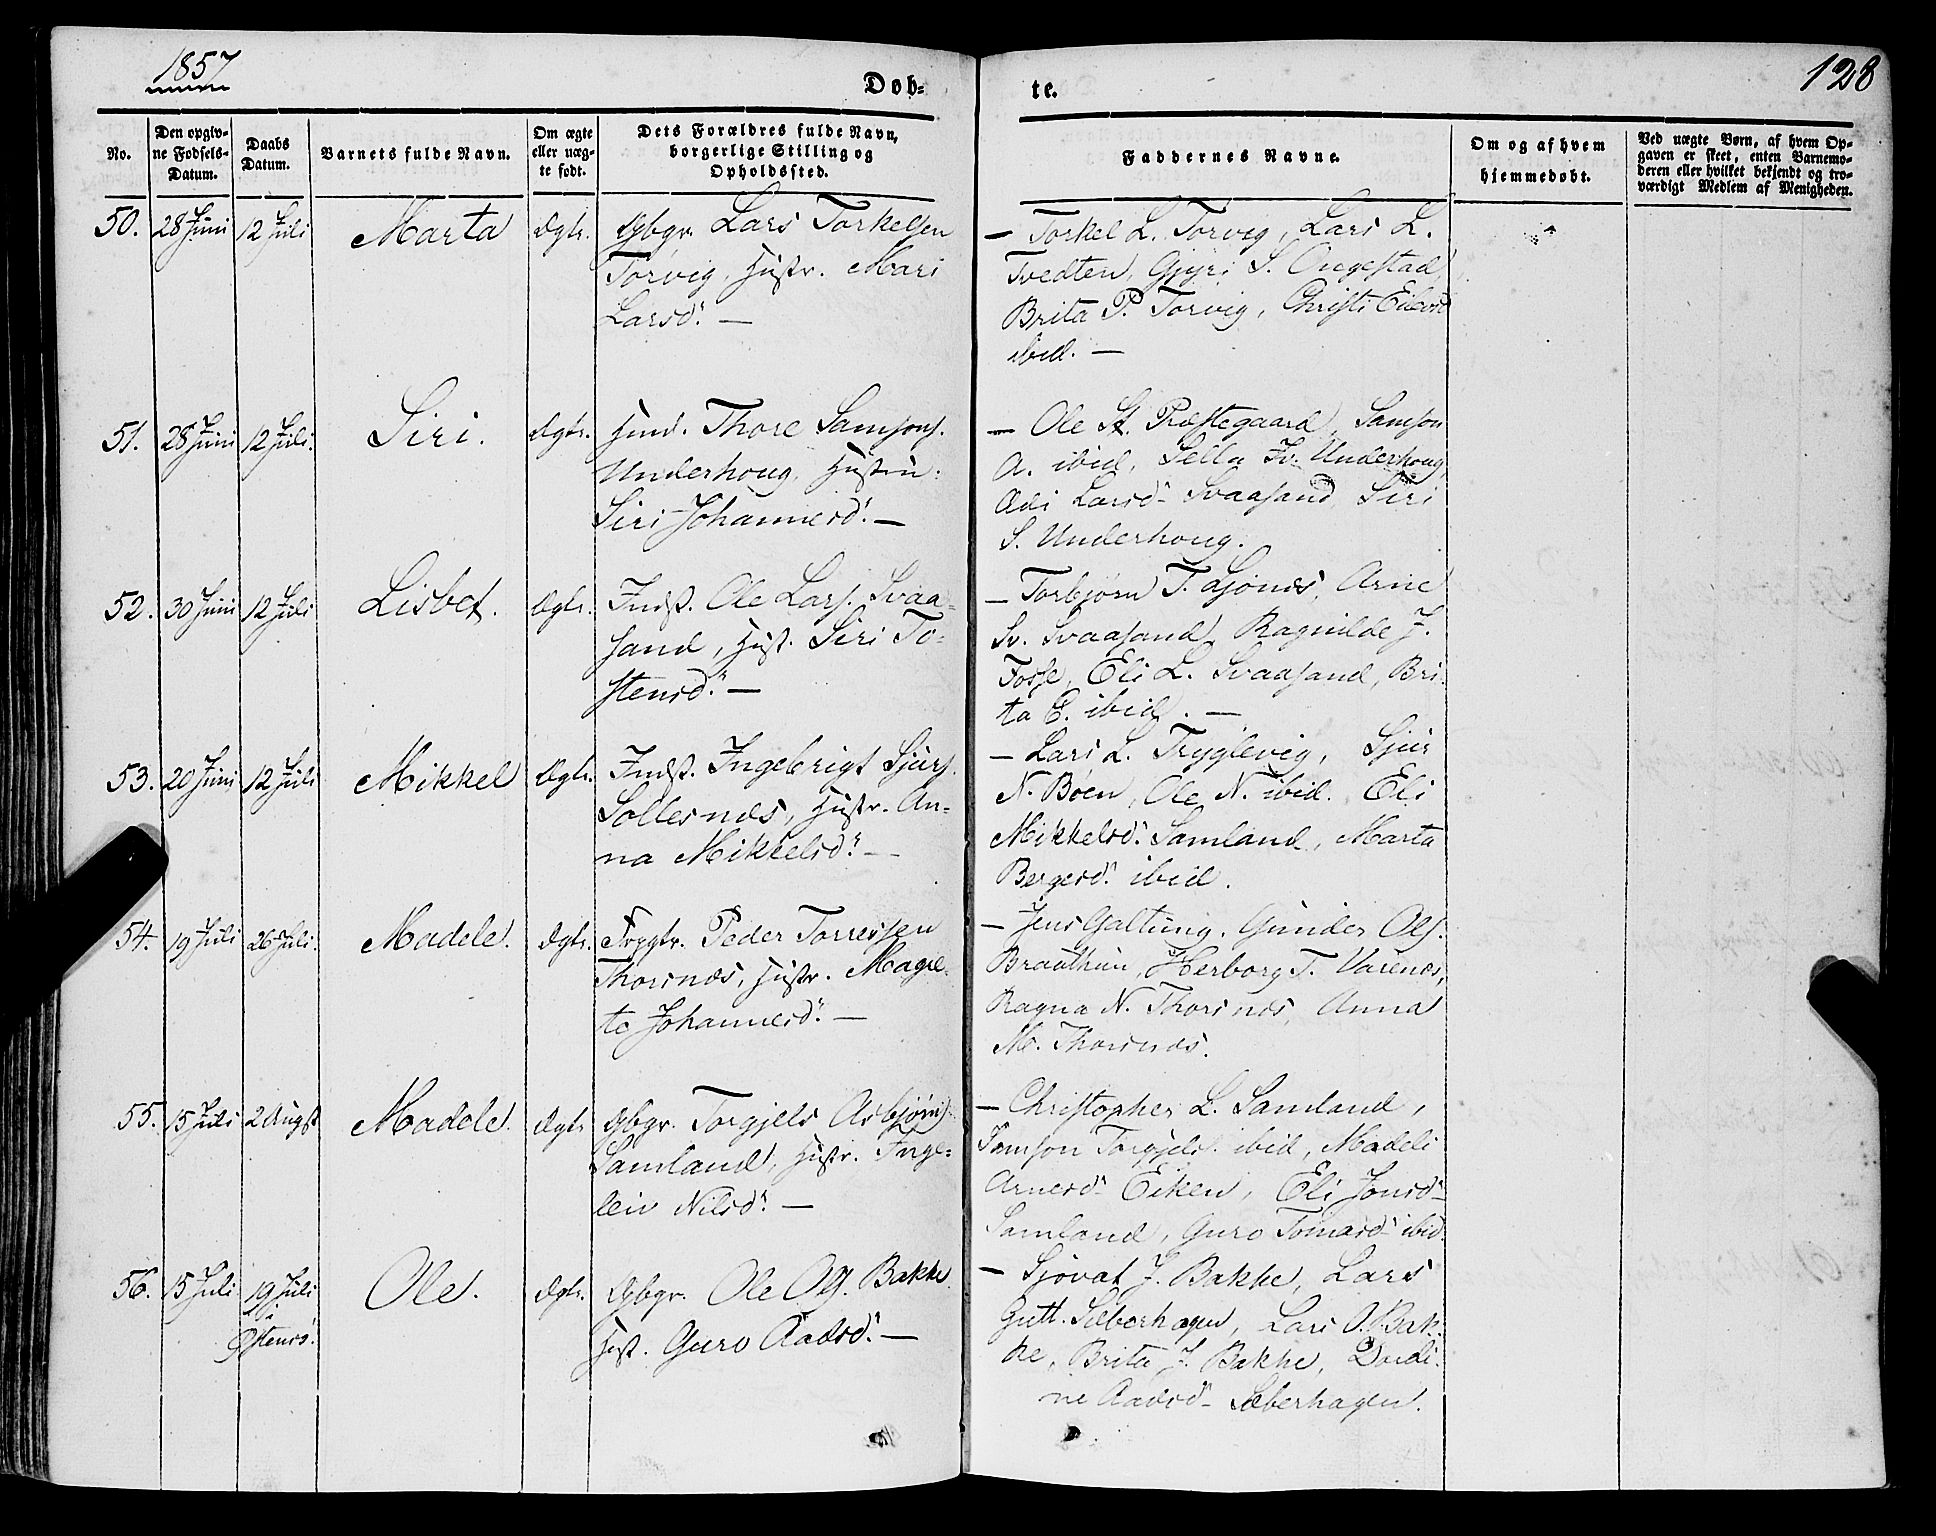 1857
Døb-
te.
128
No.
Den opgiv-
ne Fødsels-
Datum.
Daabs
Datum.
Barnets fulde Navn.
Om ægte
eller uæg-
te født.
Dets Forældres fulde Navn,
borgerlige Stilling og
Opholdssted.
Faddernes Navne.
Om og af hvem
hjemmedøbt.
Ved uægte Børn, af hvem Op-
gaven er skeet, enten Barnemo-
deren eller hvilket bekjendt og tro-
værdigt Medlem af Menigheden.
50. 28 Juni 12 Juli Marta Ægte. Gbgr. Lars Torkelsen
Torvig, Hustr. Mari
Larsd. —
— Torkel L. Torvig, Lars L.
Tvedten, Gjyri S. Augestad,
Brita P. Torvig, Christi
ibid. —
51. 28 Juni 12 Juli. Siri. Ægte. Huusm. Thore Samsons.
Underhoug, Hustru:
Siri Johannesd. —
— Ole St. Præstegaard, Samson
A. ibid, Sella Iv. Underhoug,
Larsd. Svaasand, Siri
S. Underhoug.
52. 30 Juni 12 Juli Lisbet. Ægte. Indst. Ole Lars. Svaa-
sand, Hust. Siri To-
stensd. —
— Torbjørn T. Sjønæs, Arne
Sv. Svaasand, Ragnilde J.
Fosse, Eli L. Svaasand, Bri-
ta E. ibid. —
53. 20 Juni 12 Juli Mikkel Ægte. Indst. Ingebrigt Sjurs.
Sollesnæs, Hustr. An-
na Mikkelsd. —
— Lars L. Tryglevig, Sjur
N. Bøen, Ole N. ibid. Eli
Mikkelsd. Samland, Marta
Bergesd. ibid.
54. 19 Juli 26 Juli. Madele. Ægte. Peder Torressen
Thorsnæs, Hustr. Magre-
te Johannesd. —
— Jens Galtung, Gunder Ols.
Braathun, Herborg T. Varenæs,
Ragna N. Thorsnæs, Anna
M. Thorsnæs.
55. 15 Juli 2 Augst Madele. Ægte Gbgr. Torgjels Asbjørns.
Samland, Hustr. Inge-
leiv Nilsd. —
— Christopher L. Samland,
Samson Torgjels. ibid, Madeli
Arnesd. Eiken, Eli Jonsd.
Samland, Guro Tomasd. ibid.
56. 15 Juli 19 Juli Ole. Ægte. Gbgr. Ole Og. Bakke
i
Østensø.
Hust. Guro Aadsd. —
— Sjovat J. Bakke, Lars
Gutt. Sæberhagen, Lars O. Bak-
ke, Brita J. Bakke, Dordi-
ne Aadsd. Sæberhagen.